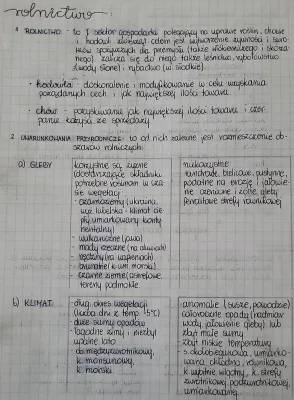 rolnictwo
1 ROLNICTWO - to 1 sektor gospodarki polegający na uprawie roślin, chowie
i hodowli zwierząt. celem jest wytwarzanie żywności i surow-
ców
przemysłu (także włókienniczego i skórza-
nego). zalicza się do niego także leśnictwo, rybołówstwo
(wody słone) i rybactwo (w. słodkie).
- hodowla: doskonalenie i modyfikowanie w celu uzyskania
pożądanych cech i jak największej ilości towaru.
- chów - pozyskiwanie jak największej ilości towaru i czer-
panie korzyści ze sprzedaży.
2 UWARUNKOWANIA PRZYRODNICZE - to od nich zależne jest rozmieszczenie ob-
szarów rolniczych:
a) GLEBY
korzystne są, żyzne
(dostarczające składniki
potrzebne roślinom w cza-
sie wegetacji)
- czarnoziemy (ukraina,
wyż. lubelska - klimat cie-
pły umiarkowany konty-
nentalny)
- wulkaniczne (jawa)
- mady rzeczne (na
- rędziny (na wapieniach)
- brunatne (k. um. morski)
- czarne ziemie
tereny podmokłe
niekorzystne
tundrowe, bielicowe, pustynne,
podatne na erozję i jałowie-
nie czerwone i żółte, gleby
ferralitowe strefy równikowej
b) KLIMAT
- długi okres wegetacji
(liczba dni z temp. >5°C)
- duże sumy opadów
- łagodne zimy i niezbyt
upalne lato
k. monsunowy,
k. morski
anomalie (susze, powodzie)
całoroczne opady (nadmiar
wody, jałowienie gleby) lub
zbyt małe sumy
zbyt niskie temperatury
s. okołobiegunowa, umiarko-
wana chłodna, równikowa,
k. wybitnie wilgotny, k. strefy
zwrotnikowej, podzwrotnikowej,
umiarkowanej.